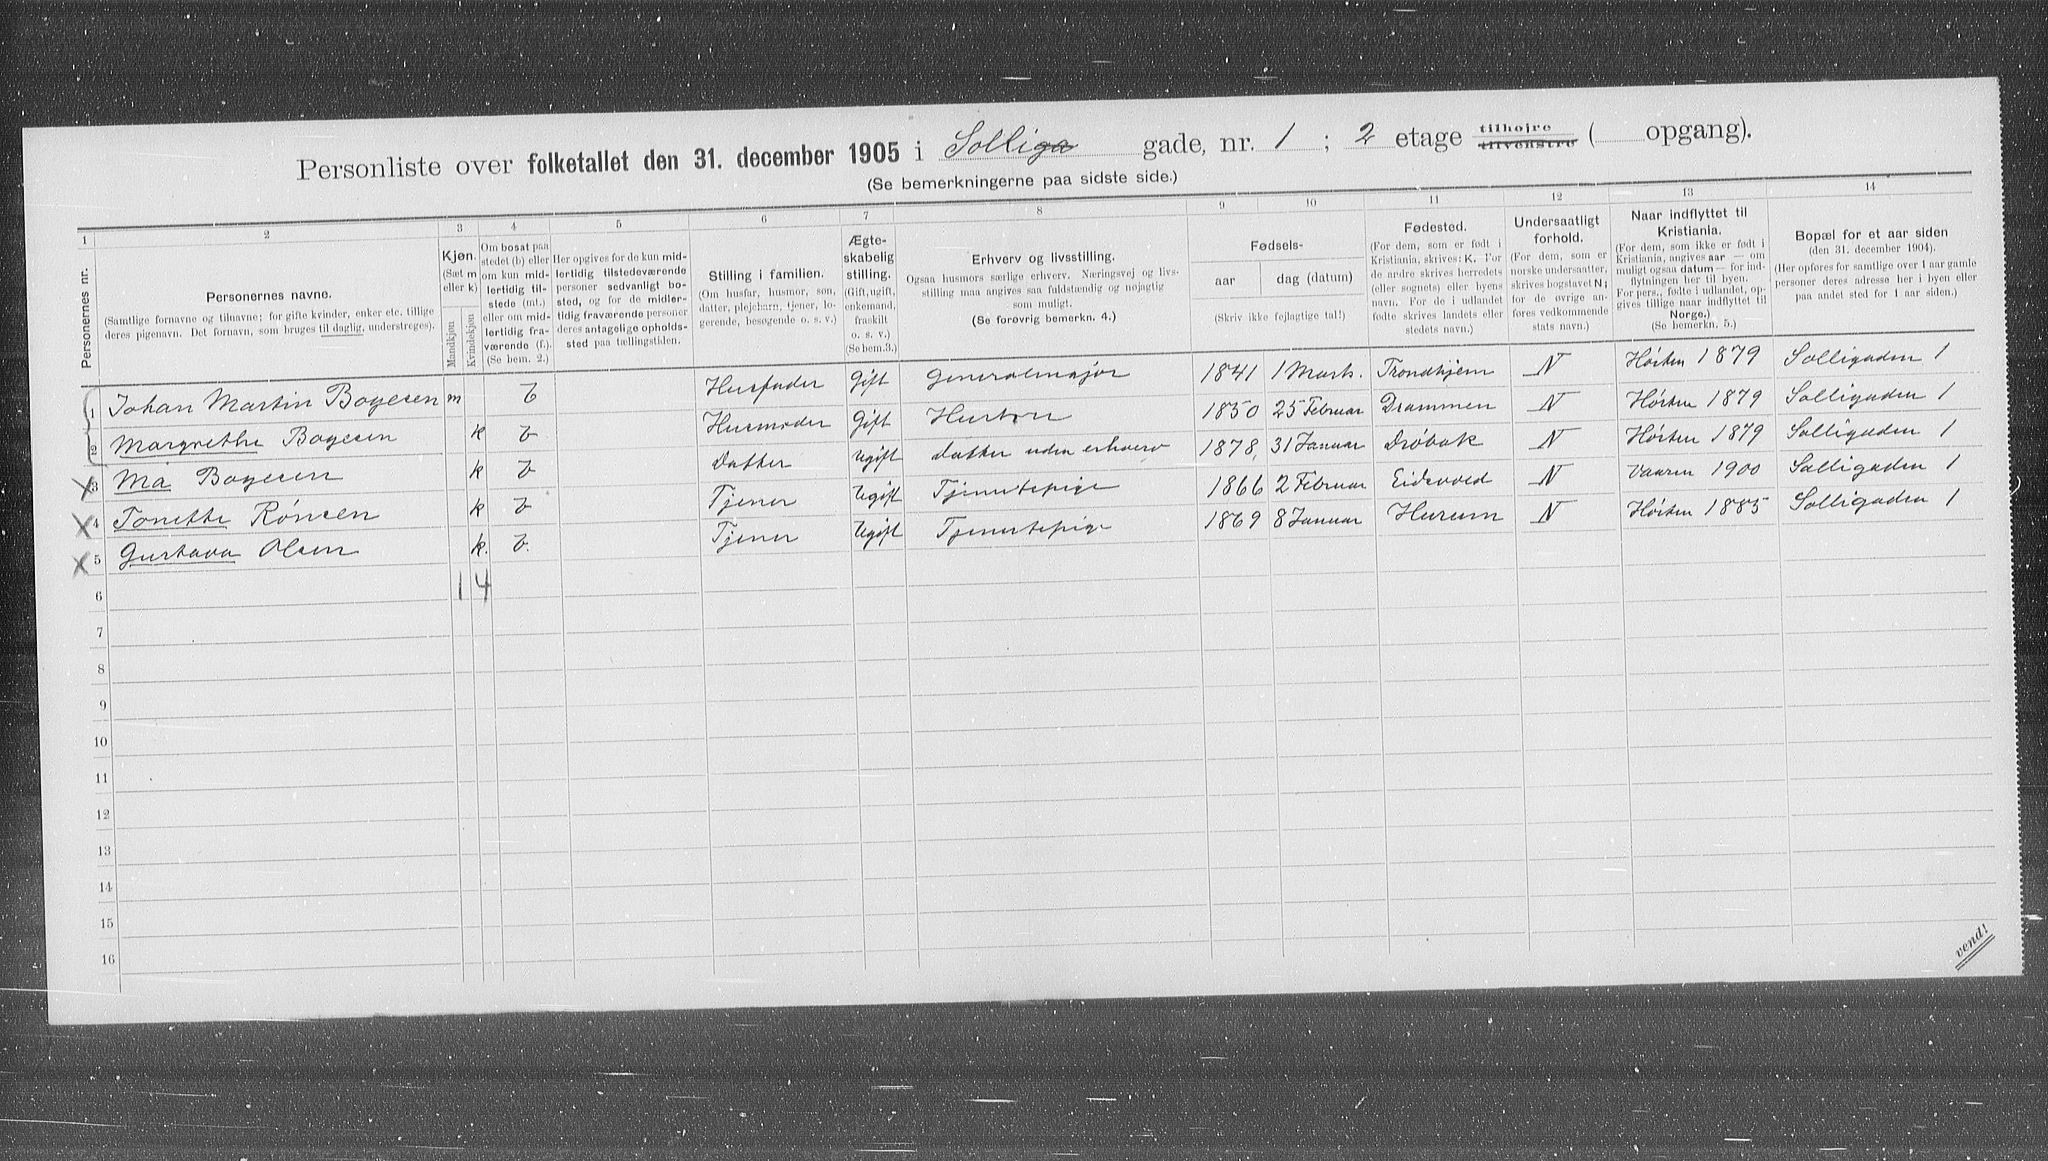 Personliste over folketallet den 31. december 1905 i Solliga gade, nr. 1 ; 2 etage tilhøjre tilvenstre ( opgang).
(Se bemerkningerne paa sidste side.)
1 2 3 4 5 6 7 8 9 10 11 12 13 14
Personernes nr.
Personernes navne.
(Samtlige fornavne og tilnavne; for gifte kvinder, enker etc. tillige
deres pigenavn. Det fornavn, som bruges til daglig, understreges).
Kjøn.
(Sæt m
eller k)
Mandkjøn
Kvindekjøn
Om bosat paa
stedet (b) eller
om kun mid-
lertidig til-
stede (mt.)
eller om mid-
lertidig fra-
værende (f.).
(Se bem. 2.)
Her opgives for de kun mid-
lertidig tilstedeværende
personer sedvanlig bo-
sted, og for de midler-
tidig fraværende personer
deres antagelige opholds-
sted paa tællingstiden.
Stilling i familien.
(Om husfar, husmor, søn,
datter, plejebarn, tjener, lo-
gerende, besøgende o. s. v.)
Ægte-
skabelig
stilling.
(Gift, ugift,
enkemand,
fraskilt
o. s. v.)
(Se bem.3.)
Erhverv og livsstilling.
Ogsaa husmors særlige erhverv. Næringsvej og livs-
stilling maa angives saa fuldstændig og nøjagtig
som muligt.
(Se forøvrig bemerkn. 4.)
Fødsels-
aar dag (datum)
(Skriv ikke fejlagtige tal!)
Fødested.
(For dem, som er født i
Kristiania, skrives: K. For
de andre skrives herredets
(eller sognets) eller byens
navn. For de i udlandet
fødte skrives landets eller
stedets navn.)
Undersaatligt
forhold.
(For dem, som er
norske undersaatter,
skrives bogstavet N;
for de øvrige an-
føres vedkommende
stats navn.)
Naar indflyttet til
Kristiania.
(For dem, som ikke er født i
Kristiania, angives aar — om
muligt ogsaa datum — for ind-
flytningen her til byen.
For pers., fødte i udlandet, op-
gives tillige naar indflyttet til
Norge.)
(Se bemerkn. 5.)
Bopæl for et aar siden
(den 31. december 1904).
(Her opføres for samtlige over 1 aar gamle
personer deres adresse her i byen eller
paa andet sted for 1 aar siden.)
1 Johan Martin Bøyesen m b Husfader Gift Generalmajor 1841 1 Marts. Trondhjem N Høsten 1879 Solligaden 1
2 Margrethe Bøyesen k b Husmoder Gift Hustru 1850 25 Februar Drammen N Høsten 1879 Solligaden 1
3 Bøyesen k b Datter Ugift Datter uden erhverv 1878, 31 Januar Drøbak N Høsten 1879 Solligaden 1
4 Tonette Rønsen k b Tjener Ugift Tjenestepige 1866 2 Februar Eidsvold N Vaaren 1900 Solligaden 1
5 Gustava Olsen k. b. Tjener Ugift Tjenestepige 1869 8 Januar Hurum N Høsten 1885 Solligaden 1
6 1 4
7
8
9
10
11
12
13
14
15
16
vend!